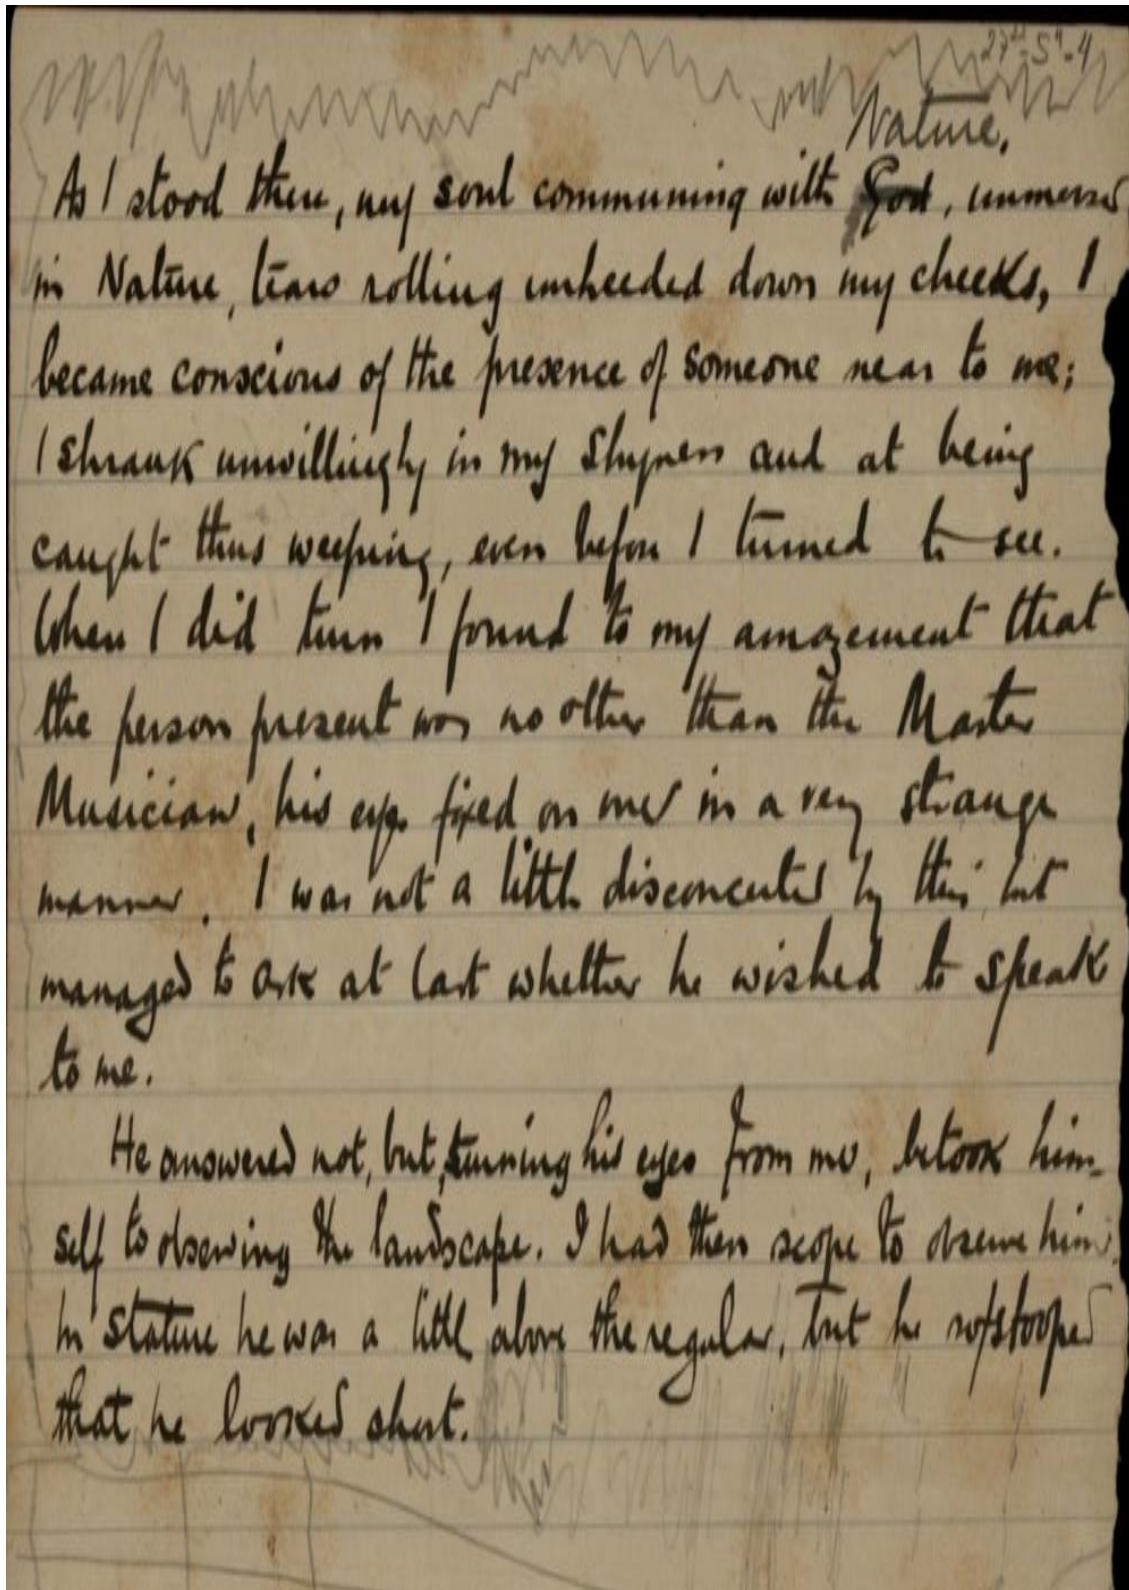 Nature,
As I stood there, my soul communing with God, immersed
in Nature, tears rolling unheeded down my cheeks, I
became conscious of the presence of someone near to me;
I shrank unwillingly in my shyness and at being
caught thus weeping, even before I turned to see.
When I did turn I found to my amazement that
the person present was no other than the Master
Musician, his eyes fixed on me in a very strange
manner. I was not a little disconcerted by this, but
managed to ask at last whether he wished to speak
to me.
He answered not, but, turning his eyes from me, betook him-
self to observing the landscape. I had then scope to observe him.
In stature he was a little above the regular, but he so stooped
that he looked short.